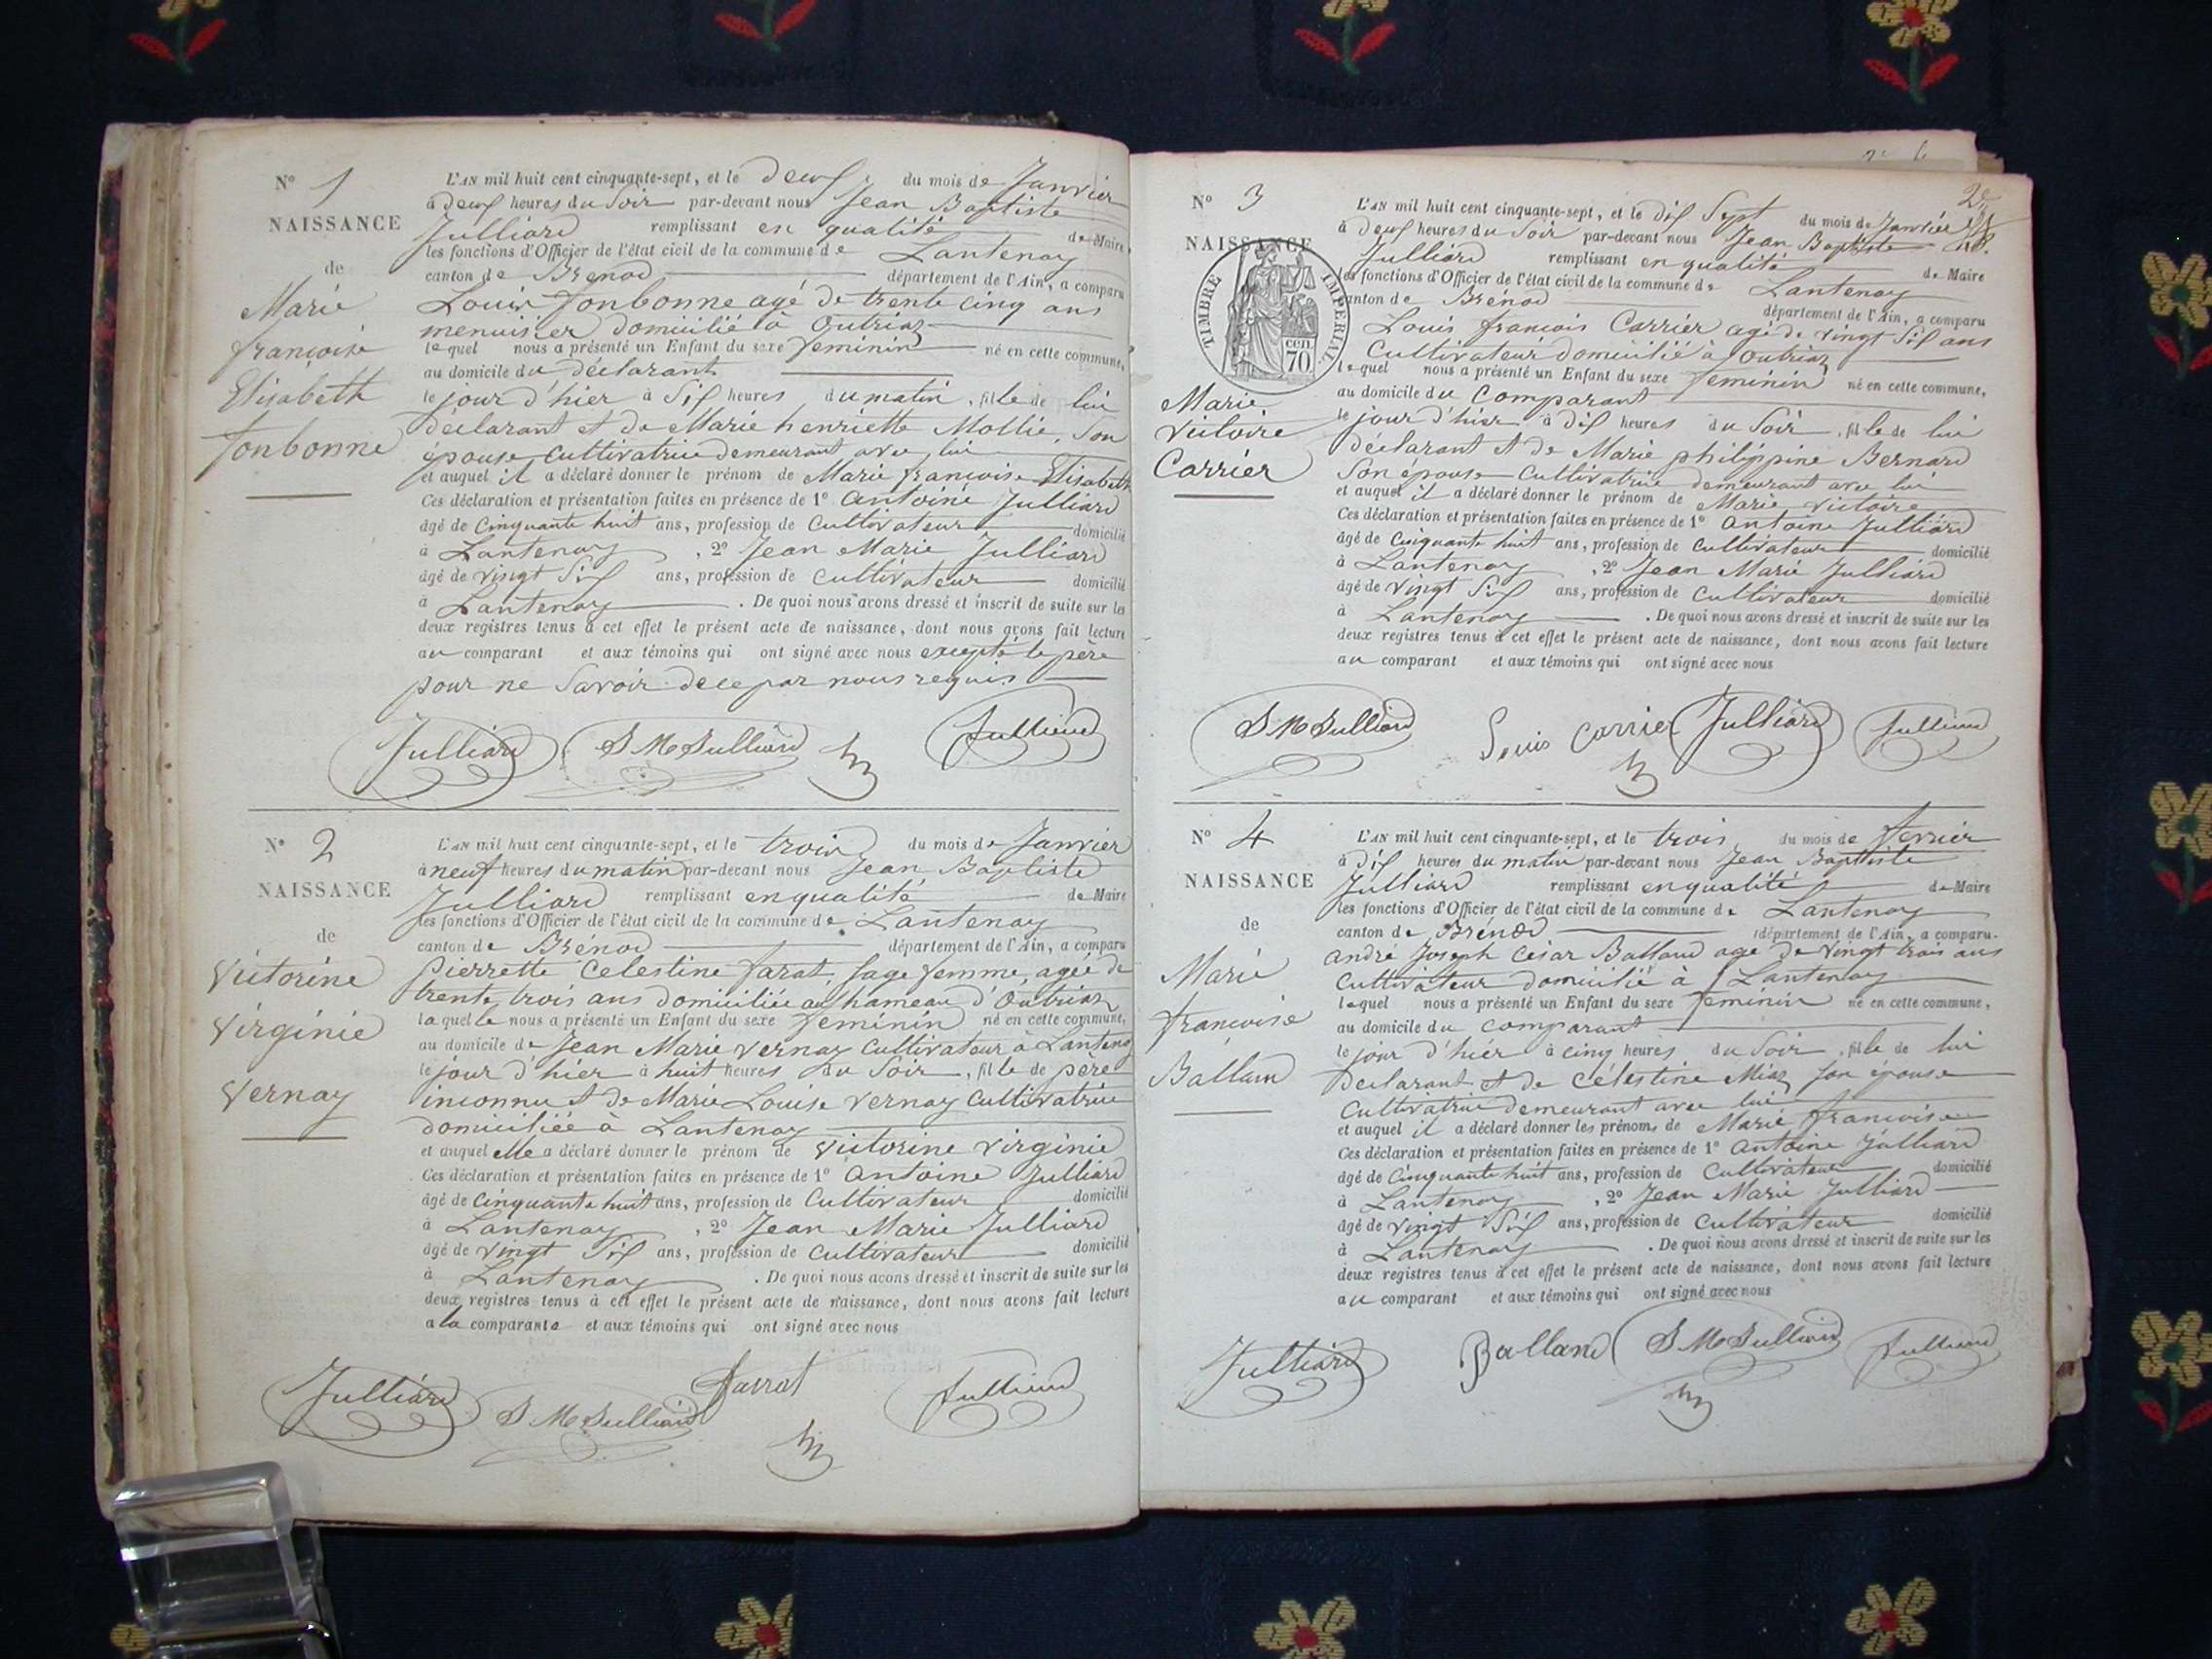 N° 1
NAISSANCE
de
Marie
françoise
Elisabeth
Jonbonne
L'AN mil huit cent cinquante-sept, et le deux du mois de Janvier
à deux heures du Soir par-devant nous Jean Baptiste
Julliard remplissant en qualité de Maire,
les fonctions d'Officier de l'état civil de la commune de Lantenay
canton de Brenod département de l'Ain, a comparu
Louis Jonbonne agé de trente cinq ans
menuisier domicilié à Outriaz
lequel nous a présenté un Enfant du sexe feminin né en cette commune,
au domicile du déclarant
le jour d'hier à Six heures du matin, fille de lui
déclarant et de Marie henriette Mollie, Son
épouse cultivatrice demeurant avec lui
et auquel il a déclaré donner le prénom de Marie françoise Elisabeth
Ces déclaration et présentation faites en présence de 1° antoine Julliard
âgé de Cinquante huit ans, profession de Cultivateur domicilié
à Lantenay, 2° Jean Marie Julliard
âgé de vingt Six ans, profession de Cultivateur domicilié
à Lantenay. De quoi nous avons dressé et inscrit de suite sur les
deux registres tenus à cet effet le présent acte de naissance, dont nous avons fait lecture
au comparant et aux témoins qui ont signé avec nous excepté le père
pour ne Savoir de ce par nous requis
Julliard J M Julliard Julliard
N° 2
NAISSANCE
de
Victorine
Virginie
Vernay
L'AN mil huit cent cinquante-sept, et le trois du mois de Janvier
à neuf heures du matin par-devant nous Jean Baptiste
Julliard remplissant en qualité de Maire
les fonctions d'Officier de l'état civil de la commune de Lantenay
canton de Brénod département de l'Ain, a comparu
Pierrette Celestine farat, Sage femme, agée de
trente trois ans domiciliée au hameau d'Outriaz
laquelle nous a présenté un Enfant du sexe feminin né en cette commune,
au domicile de Jean Marie Vernay Cultivateur à Lantenay
le jour d'hier à huit heures du Soir, fille de père
inconnu et de Marie Louise Vernay Cultivatrice
domiciliée à Lantenay
et auquel elle a déclaré donner le prénom de Victorine Virginie
Ces déclaration et présentation faites en présence de 1° antoine Julliard
âgé de Cinquante huit ans, profession de Cultivateur domicilié
à Lantenay, 2° Jean Marie Julliard
âgé de vingt Six ans, profession de Cultivateur domicilié
à Lantenay. De quoi nous avons dressé et inscrit de suite sur les
deux registres tenus à cet effet le présent acte de naissance, dont nous avons fait lecture
à la comparante et aux témoins qui ont signé avec nous
Julliard J M Julliard farrat Julliard
N° 3
NAISSANCE
TIMBRE IMPERIAL
CEN.
70.
Marie
Victoire
Carrier
L'AN mil huit cent cinquante-sept, et le dix Sept du mois de Janvier
à deux heures du Soir par-devant nous Jean Baptiste
Julliard remplissant en qualité de Maire
les fonctions d'Officier de l'état civil de la commune de Lantenay
canton de Brénod département de l'Ain, a comparu
Louis françois Carrier agé de vingt Six ans
Cultivateur domicilié à Outriaz
lequel nous a présenté un Enfant du sexe feminin né en cette commune,
au domicile du Comparant
le jour d'hier à dix heures du Soir, fille de lui
déclarant et de Marie philippine Bernard
Son épouse Cultivatrice demeurant avec lui
et auquel il a déclaré donner le prénom de Marie Victoire
Ces déclaration et présentation faites en présence de 1° antoine Julliard
âgé de Cinquante huit ans, profession de Cultivateur domicilié
à Lantenay, 2° Jean Marie Julliard
âgé de vingt Six ans, profession de Cultivateur domicilié
à Lantenay. De quoi nous avons dressé et inscrit de suite sur les
deux registres tenus à cet effet le présent acte de naissance, dont nous avons fait lecture
au comparant et aux témoins qui ont signé avec nous
J M Julliard Louis Carrier Julliard Julliard
N° 4
NAISSANCE
de
Marie
françoise
Balland
L'AN mil huit cent cinquante-sept, et le trois du mois de fevrier
à dix heures du matin par-devant nous Jean Baptiste
Julliard remplissant en qualité de Maire
les fonctions d'Officier de l'état civil de la commune de Lantenay
canton de Brénod département de l'Ain, a comparu.
andré Joseph César Balland agé de vingt trois ans
Cultivateur domicilié à Lantenay
lequel nous a présenté un Enfant du sexe feminin né en cette commune,
au domicile du comparant
le jour d'hier à cinq heures du Soir, fille de lui
déclarant et de Célestine Miaz Son épouse
Cultivatrice demeurant avec lui
et auquel il a déclaré donner les prénoms de Marie françoise
Ces déclaration et présentation faites en présence de 1° antoine Julliard
âgé de Cinquante huit ans, profession de Cultivateur domicilié
à Lantenay, 2° Jean Marie Julliard
âgé de vingt Six ans, profession de Cultivateur domicilié
à Lantenay. De quoi nous avons dressé et inscrit de suite sur les
deux registres tenus à cet effet le présent acte de naissance, dont nous avons fait lecture
au comparant et aux témoins qui ont signé avec nous
Julliard Balland J M Julliard Julliard